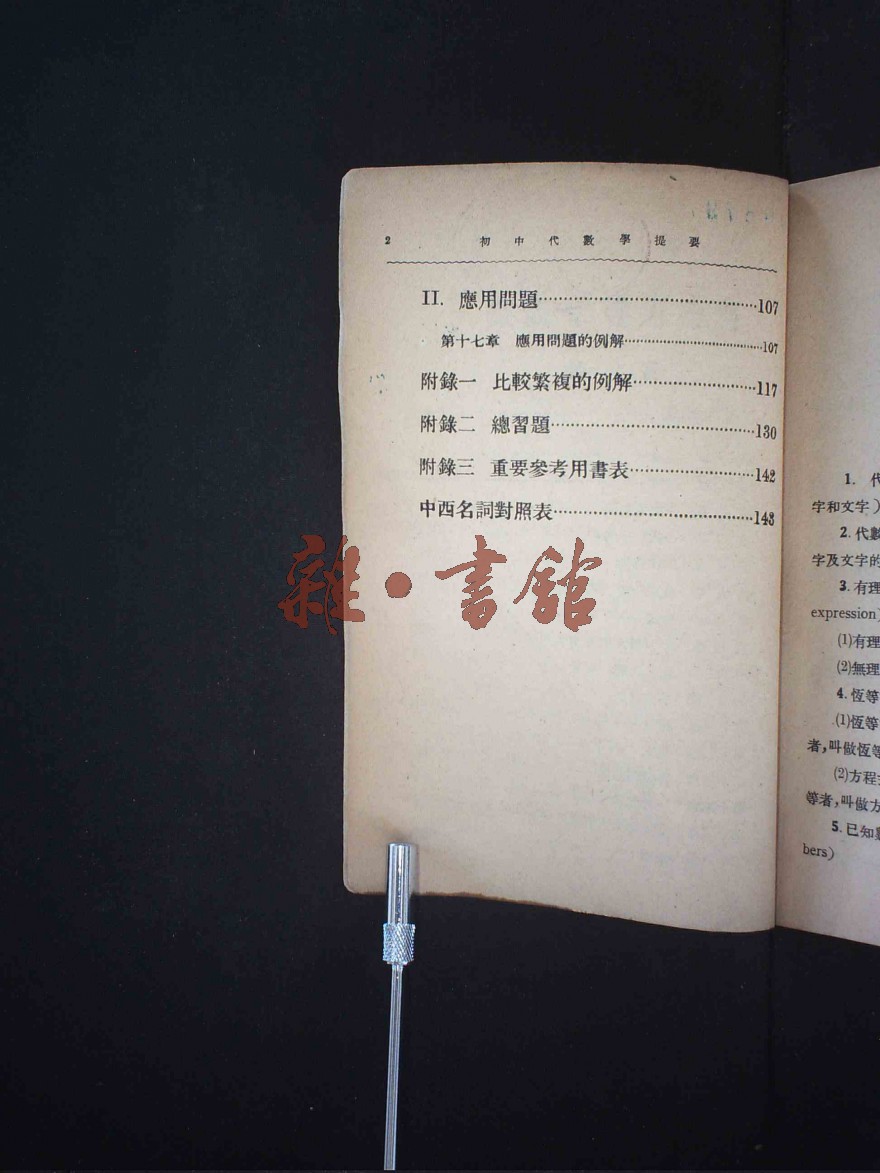 2 初中代數學提要
II. 應用問題……107
第十七章 應用問題的例解……107
附錄一 比較繁複的例解……117
附錄二 總習題……130
附錄三 重要參考用書表……142
中西名詞對照表……143
雜·書館
1. 代
字和文字)
2. 代數
字及文字的
3. 有理
expression)
(1)有理
(2)無理
4. 恆等
(1)恆等
者,叫做恆等
(2)方程
等者,叫做方
5. 已知
bers)